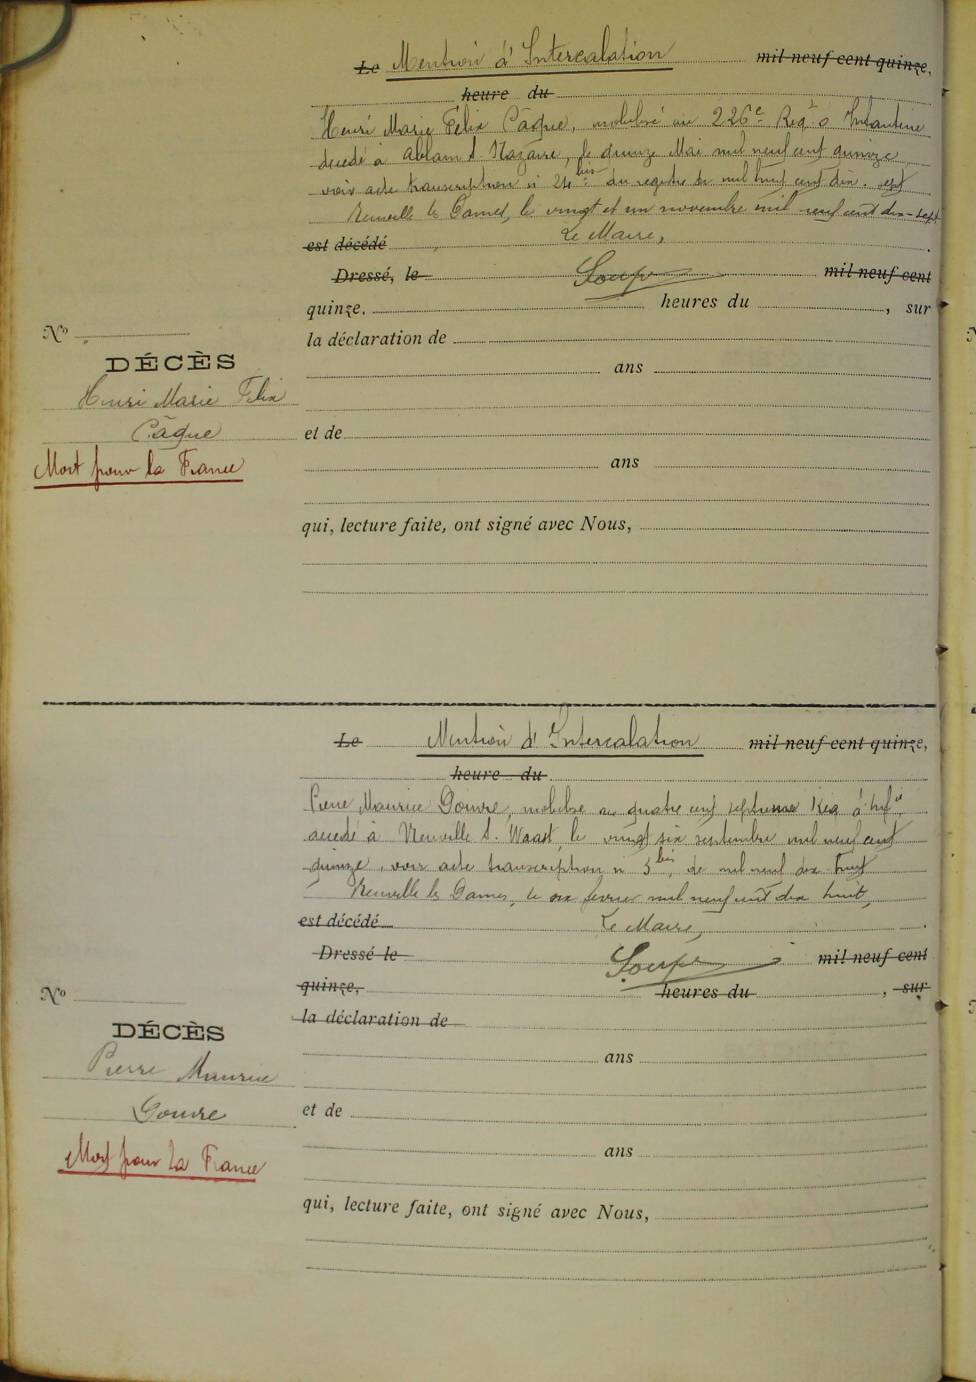 Le Mention d'Intercalation mil neuf cent quinze,
heure du
Henri Marie Félix Câgne, mobilisé au 226e Regt d'Infanterie
décédé à Ablain St. Nazaire, le quinze Mai mil neuf cent quinze
voir acte transcription n° 24 bis du registre de mil neuf cent dix-sept
Neuville les Dames, le vingt et un novembre mil neuf cent dix-sept
est décédé Le Maire,
Dressé, le mil neuf cent
quinze, heures du , sur
No
la déclaration de
DÉCÈS
ans
Henri Marie Felix
Câgne
et de
Mort pour la France
ans
qui, lecture faite, ont signé avec Nous,
Le Mention d'Intercalation mil neuf cent quinze,
heure du
Pierre Maurice Gouvre, mobilisé au quatre cent Reg d'Infie
décédé à Neuville St. Waast, le vingt six septembre mil neuf cent
quinze, voir acte transcription n° 3 bis, de mil neuf dix huit
Neuville les Dames, le six fevrier mil neuf cent dix huit,
est décédé Le Maire,
Dressé le mil neuf cent
quinze, heures du , sur
No
la déclaration de
DÉCÈS
ans
Pierre Maurice
Gouvre
et de
Mort pour La France
ans
qui, lecture faite, ont signé avec Nous,